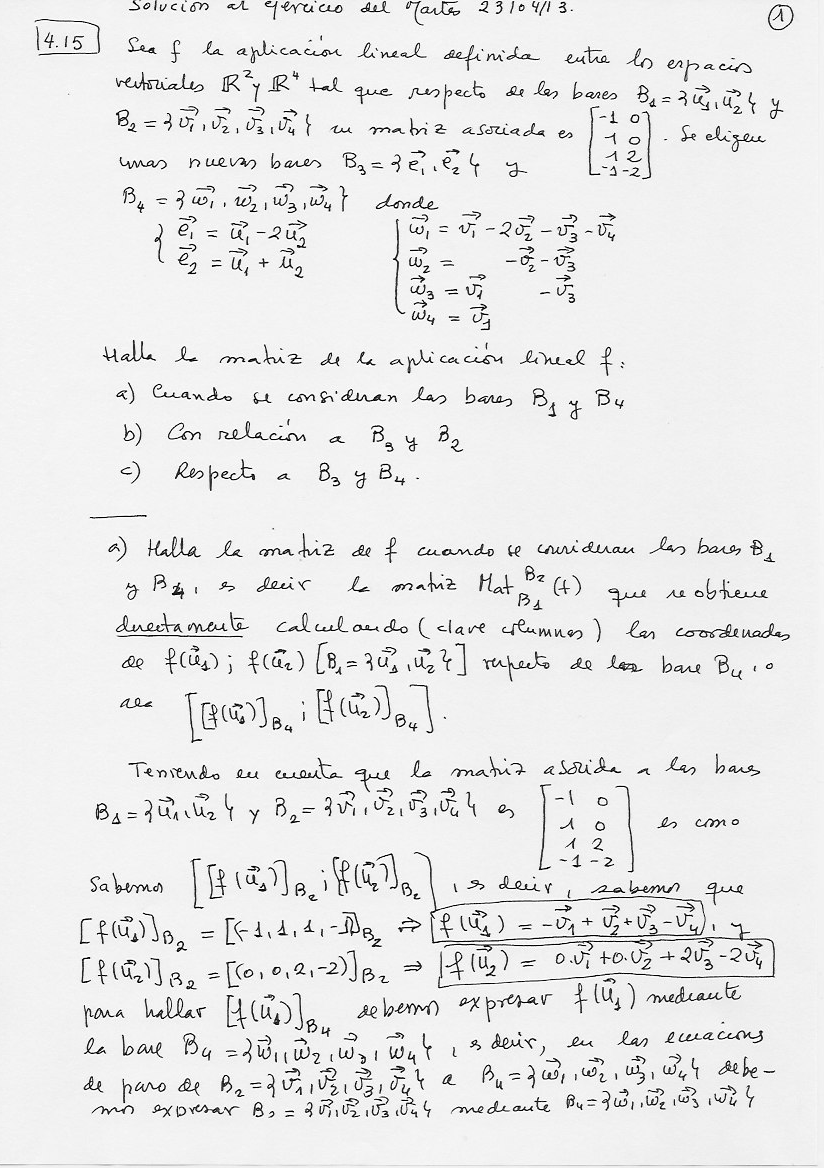 Solución al ejercicio del Martes 23/04/13.
①
4.15 Sea f la aplicación lineal definida entre los espacios
vectoriales ℝ² y ℝ⁴ tal que respecto de las bases B₁={u⃗₁,u⃗₂} y
B₂={v⃗₁,v⃗₂,v⃗₃,v⃗₄} su matriz asociada es [-1 0; 1 0; 1 2; -1 -2]. Se eligen
unas nuevas bases B₃={e⃗₁,e⃗₂} y
B₄={w⃗₁,w⃗₂,w⃗₃,w⃗₄} donde
e⃗₁ = u⃗₁-2u⃗₂
e⃗₂ = u⃗₁+u⃗₂
w⃗₁ = v⃗₁-2v⃗₂-v⃗₃-v⃗₄
w⃗₂ = -v⃗₂-v⃗₃
w⃗₃ = v⃗₁ -v⃗₃
w⃗₄ = v⃗₁
Halla la matriz de la aplicación lineal f:
a) Cuando se consideran las bases B₁ y B₄
b) Con relación a B₃ y B₂
c) Respecto a B₃ y B₄.
a) Halla la matriz de f cuando se consideran las bases B₁
y B₄, es decir la matriz Mat_B₁^B₂(f) que se obtiene
directamente calculando (clave columnas) las coordenadas
de f(u⃗₁); f(u⃗₂) [B₁={u⃗₁,u⃗₂}] respecto de la base B₄, o
sea [[f(u⃗₁)]_B₄; [f(u⃗₂)]_B₄].
Teniendo en cuenta que la matriz asociada a las bases
B₁={u⃗₁,u⃗₂} y B₂={v⃗₁,v⃗₂,v⃗₃,v⃗₄} es [-1 0; 1 0; 1 2; -1 -2] es como
Sabemos [[f(u⃗₁)]_B₂; [f(u⃗₂)]_B₂], es decir, sabemos que
[f(u⃗₁)]_B₂ = [(-1,1,1,-1)]_B₂ ⇒ f(u⃗₁) = -v⃗₁+v⃗₂+v⃗₃-v⃗₄, y
[f(u⃗₂)]_B₂ = [(0,0,2,-2)]_B₂ ⇒ f(u⃗₂) = 0·v⃗₁+0·v⃗₂+2v⃗₃-2v⃗₄
para hallar [f(u⃗₁)]_B₄ debemos expresar f(u⃗₁) mediante
la base B₄={w⃗₁,w⃗₂,w⃗₃,w⃗₄}, es decir, en las ecuaciones
de paso de B₂={v⃗₁,v⃗₂,v⃗₃,v⃗₄} a B₄={w⃗₁,w⃗₂,w⃗₃,w⃗₄} debe-
mos expresar B₂={v⃗₁,v⃗₂,v⃗₃,v⃗₄} mediante B₄={w⃗₁,w⃗₂,w⃗₃,w⃗₄}